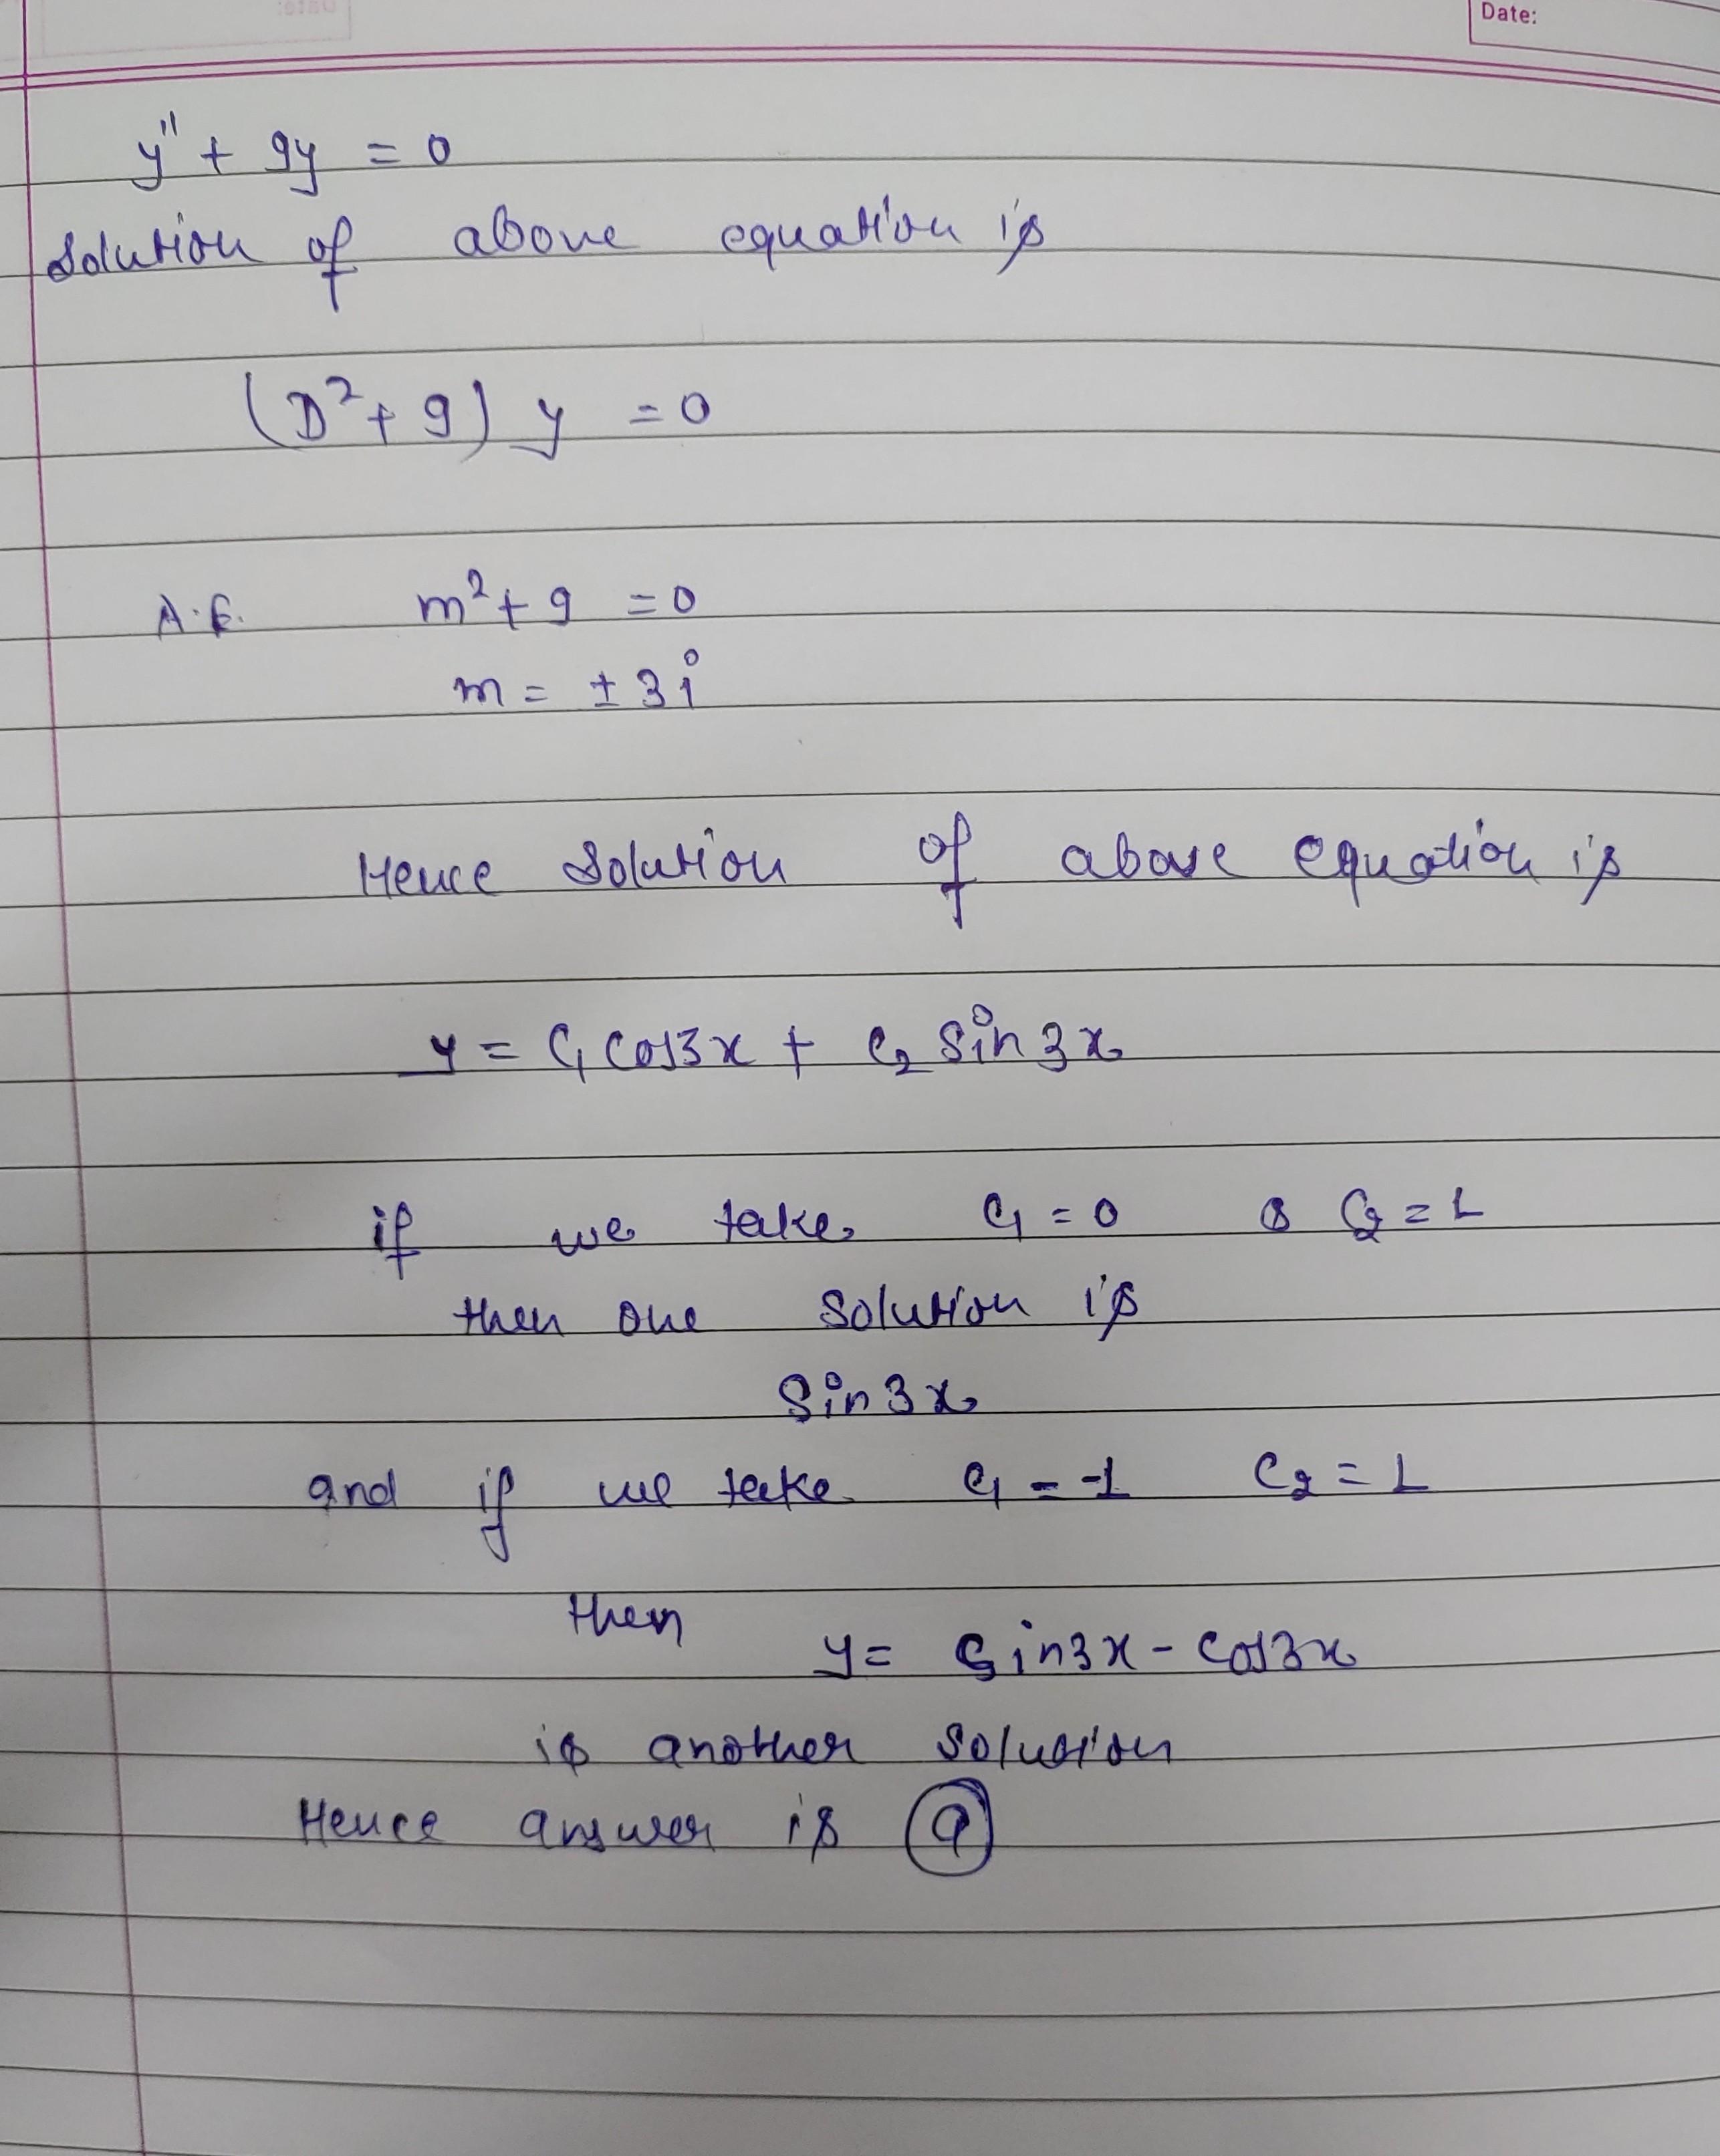 Date:
y'' + 9y = 0
Solution of above equation is
(D² + 9) y = 0
A.E. m² + 9 = 0
m = ± 3i
Hence Solution of above equation is
y = C₁ cos3x + C₂ Sin3x
if we take C₁ = 0 & C₂ = 1
then one Solution is
Sin3x
and if we take C₁ = -1 C₂ = 1
then y = Sin3x - cos3x
is another solution
Hence answer is (a)